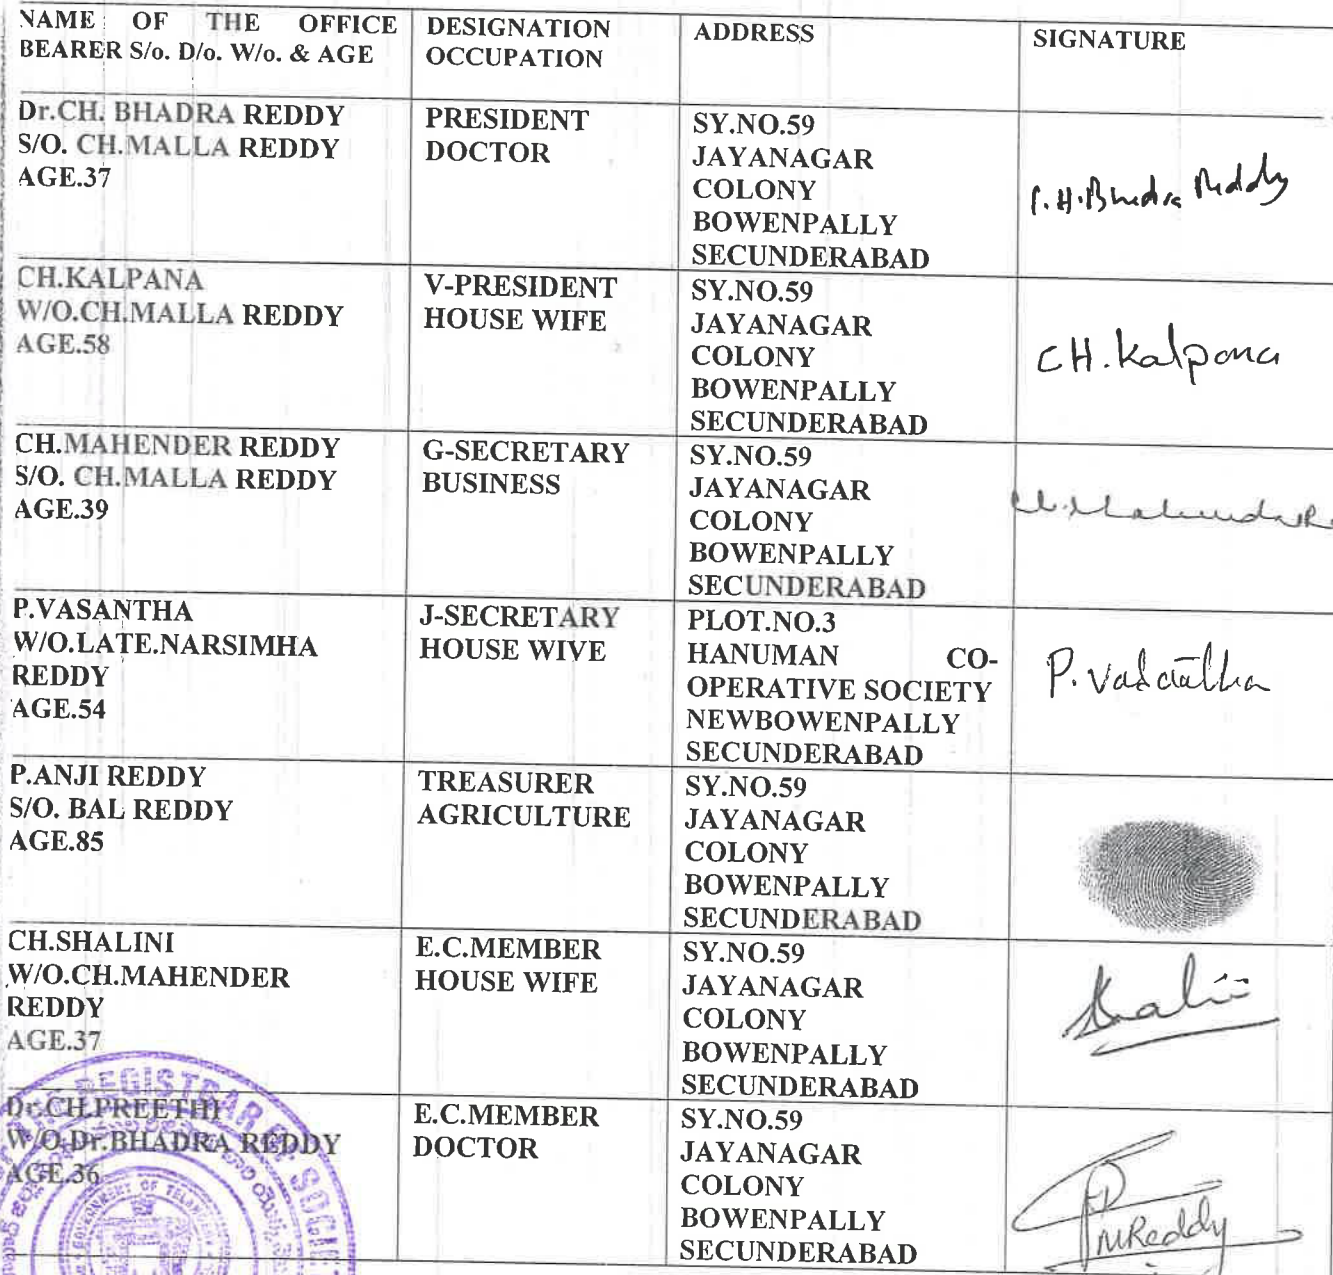 NAME OF THE OFFICE
BEARER S/o. D/o. W/o. & AGE
DESIGNATION
OCCUPATION
ADDRESS
SIGNATURE
Dr.CH. BHADRA REDDY
S/O. CH.MALLA REDDY
AGE.37
PRESIDENT
DOCTOR
SY.NO.59
JAYANAGAR
COLONY
BOWENPALLY
SECUNDERABAD
C.H.Bhadra Reddy
CH.KALPANA
W/O.CH.MALLA REDDY
AGE.58
V-PRESIDENT
HOUSE WIFE
SY.NO.59
JAYANAGAR
COLONY
BOWENPALLY
SECUNDERABAD
CH.Kalpana
CH.MAHENDER REDDY
S/O. CH.MALLA REDDY
AGE.39
G-SECRETARY
BUSINESS
SY.NO.59
JAYANAGAR
COLONY
BOWENPALLY
SECUNDERABAD
P.VASANTHA
W/O.LATE.NARSIMHA
REDDY
AGE.54
J-SECRETARY
HOUSE WIVE
PLOT.NO.3
HANUMAN CO-
OPERATIVE SOCIETY
NEWBOWENPALLY
SECUNDERABAD
P. Vasantha
P.ANJI REDDY
S/O. BAL REDDY
AGE.85
TREASURER
AGRICULTURE
SY.NO.59
JAYANAGAR
COLONY
BOWENPALLY
SECUNDERABAD
CH.SHALINI
W/O.CH.MAHENDER
REDDY
AGE.37
E.C.MEMBER
HOUSE WIFE
SY.NO.59
JAYANAGAR
COLONY
BOWENPALLY
SECUNDERABAD
Dr.CH.PREETHI
W/O.Dr.BHADRA REDDY
AGE.36
E.C.MEMBER
DOCTOR
SY.NO.59
JAYANAGAR
COLONY
BOWENPALLY
SECUNDERABAD
REGISTRAR OF
GOVERNMENT OF